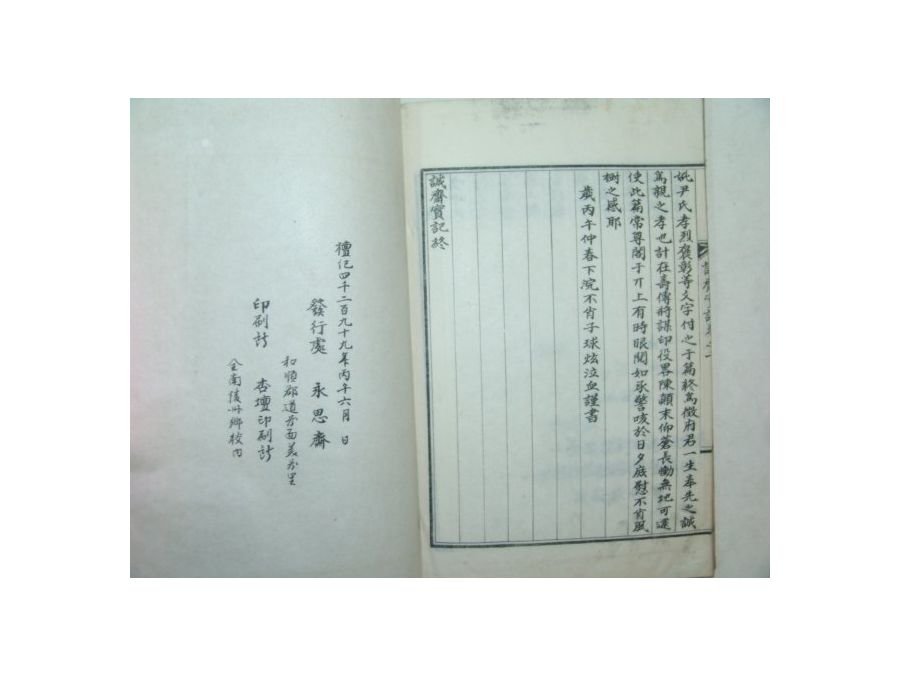 妣尹氏孝烈褒彰等文字付之于篇終爲徵府君一生奉先之誠
爲親之孝也計在壽傳將謀印役畧陳顚末仰蒼長慟無地可逮
使此篇常尊閣于丌上有時眼閱如承警咳於日夕庶慰不肖風
樹之感耶
歲丙午仲春下浣不肖子球炫泣血謹書
誠齋實記終
檀紀四千二百九十九年丙午六月 日
發行處 永思齋
和順郡道谷面美谷里
印刷所 杏壇印刷所
全南綾州鄕校內